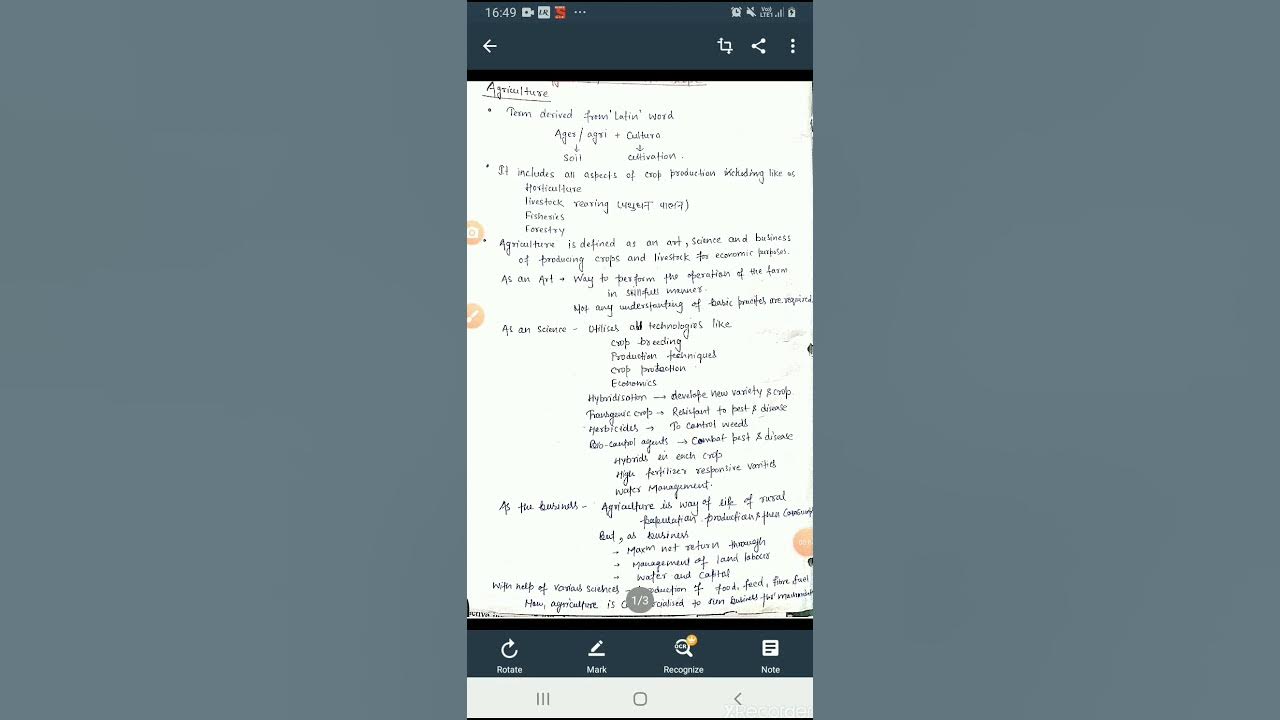 16:49
Vo))
LTE1
Agriculture
• Term derived from 'Latin' word
Ager/agri + Cultura
↓ ↓
Soil cultivation.
• It includes all aspects of crop production including like as
Horticulture
livestock rearing (पशुधन पालन)
Fisheries
Forestry
• Agriculture is defined as an art, science and business
of producing crops and livestock for economic purposes.
As an Art → Way to perform the operation of the farm
in skillfull manner.
Not any understanding of basic are required
As an science - Utilises all technologies like
Crop breeding
Production techniques
Crop production
Economics
Hybridisation → develope new variety & crop
Transgenic crop → Resistant to pest & disease
Herbicides → To control weeds
Bio-control agents → Combat pest & disease
Hybrids in each crop
High fertilizer responsive varities
Water Management.
As the business - Agriculture is way of life of rural
population production & then
But, as business
→ Maxm not return through
→ Management of land labour
→ Water and Capital
With help of various sciences → of food, feed, fibre fuel
Now, agriculture is to run business for
1/3
Rotate
Mark
OCR
Recognize
Note
XRecorder